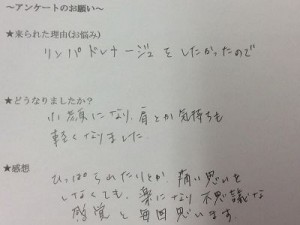 ～アンケートのお願い～
★来られた理由(お悩み)
リンパドレナージュをしたかったので
★どうなりましたか?
小顔になり、肩とか気持ちも
軽くなりました。
★感想
ひっぱられたりとか 痛い思いを
しなくても、楽になり 不思議な
感覚と毎回思います